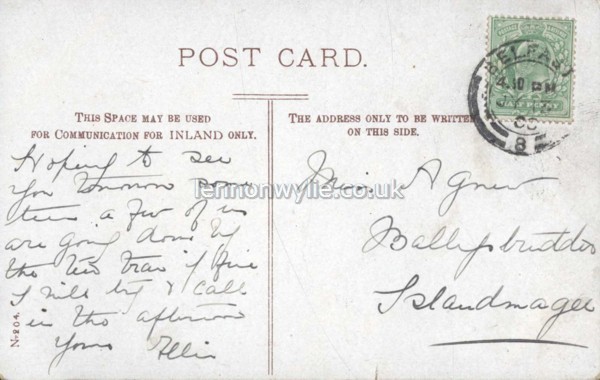 POST CARD.
THIS SPACE MAY BE USED
FOR COMMUNICATION FOR INLAND ONLY.
THE ADDRESS ONLY TO BE WRITTEN
ON THIS SIDE.
BELFAST
4.30 PM
8
HALF PENNY
Hoping to see
you tomorrow some
time a few of us
are going down by
the two train if fine
I will try & call
in the afternoon
Yours
Miss Agnew
Ballyprior
Islandmagee
lennonwylie.co.uk
No 204.